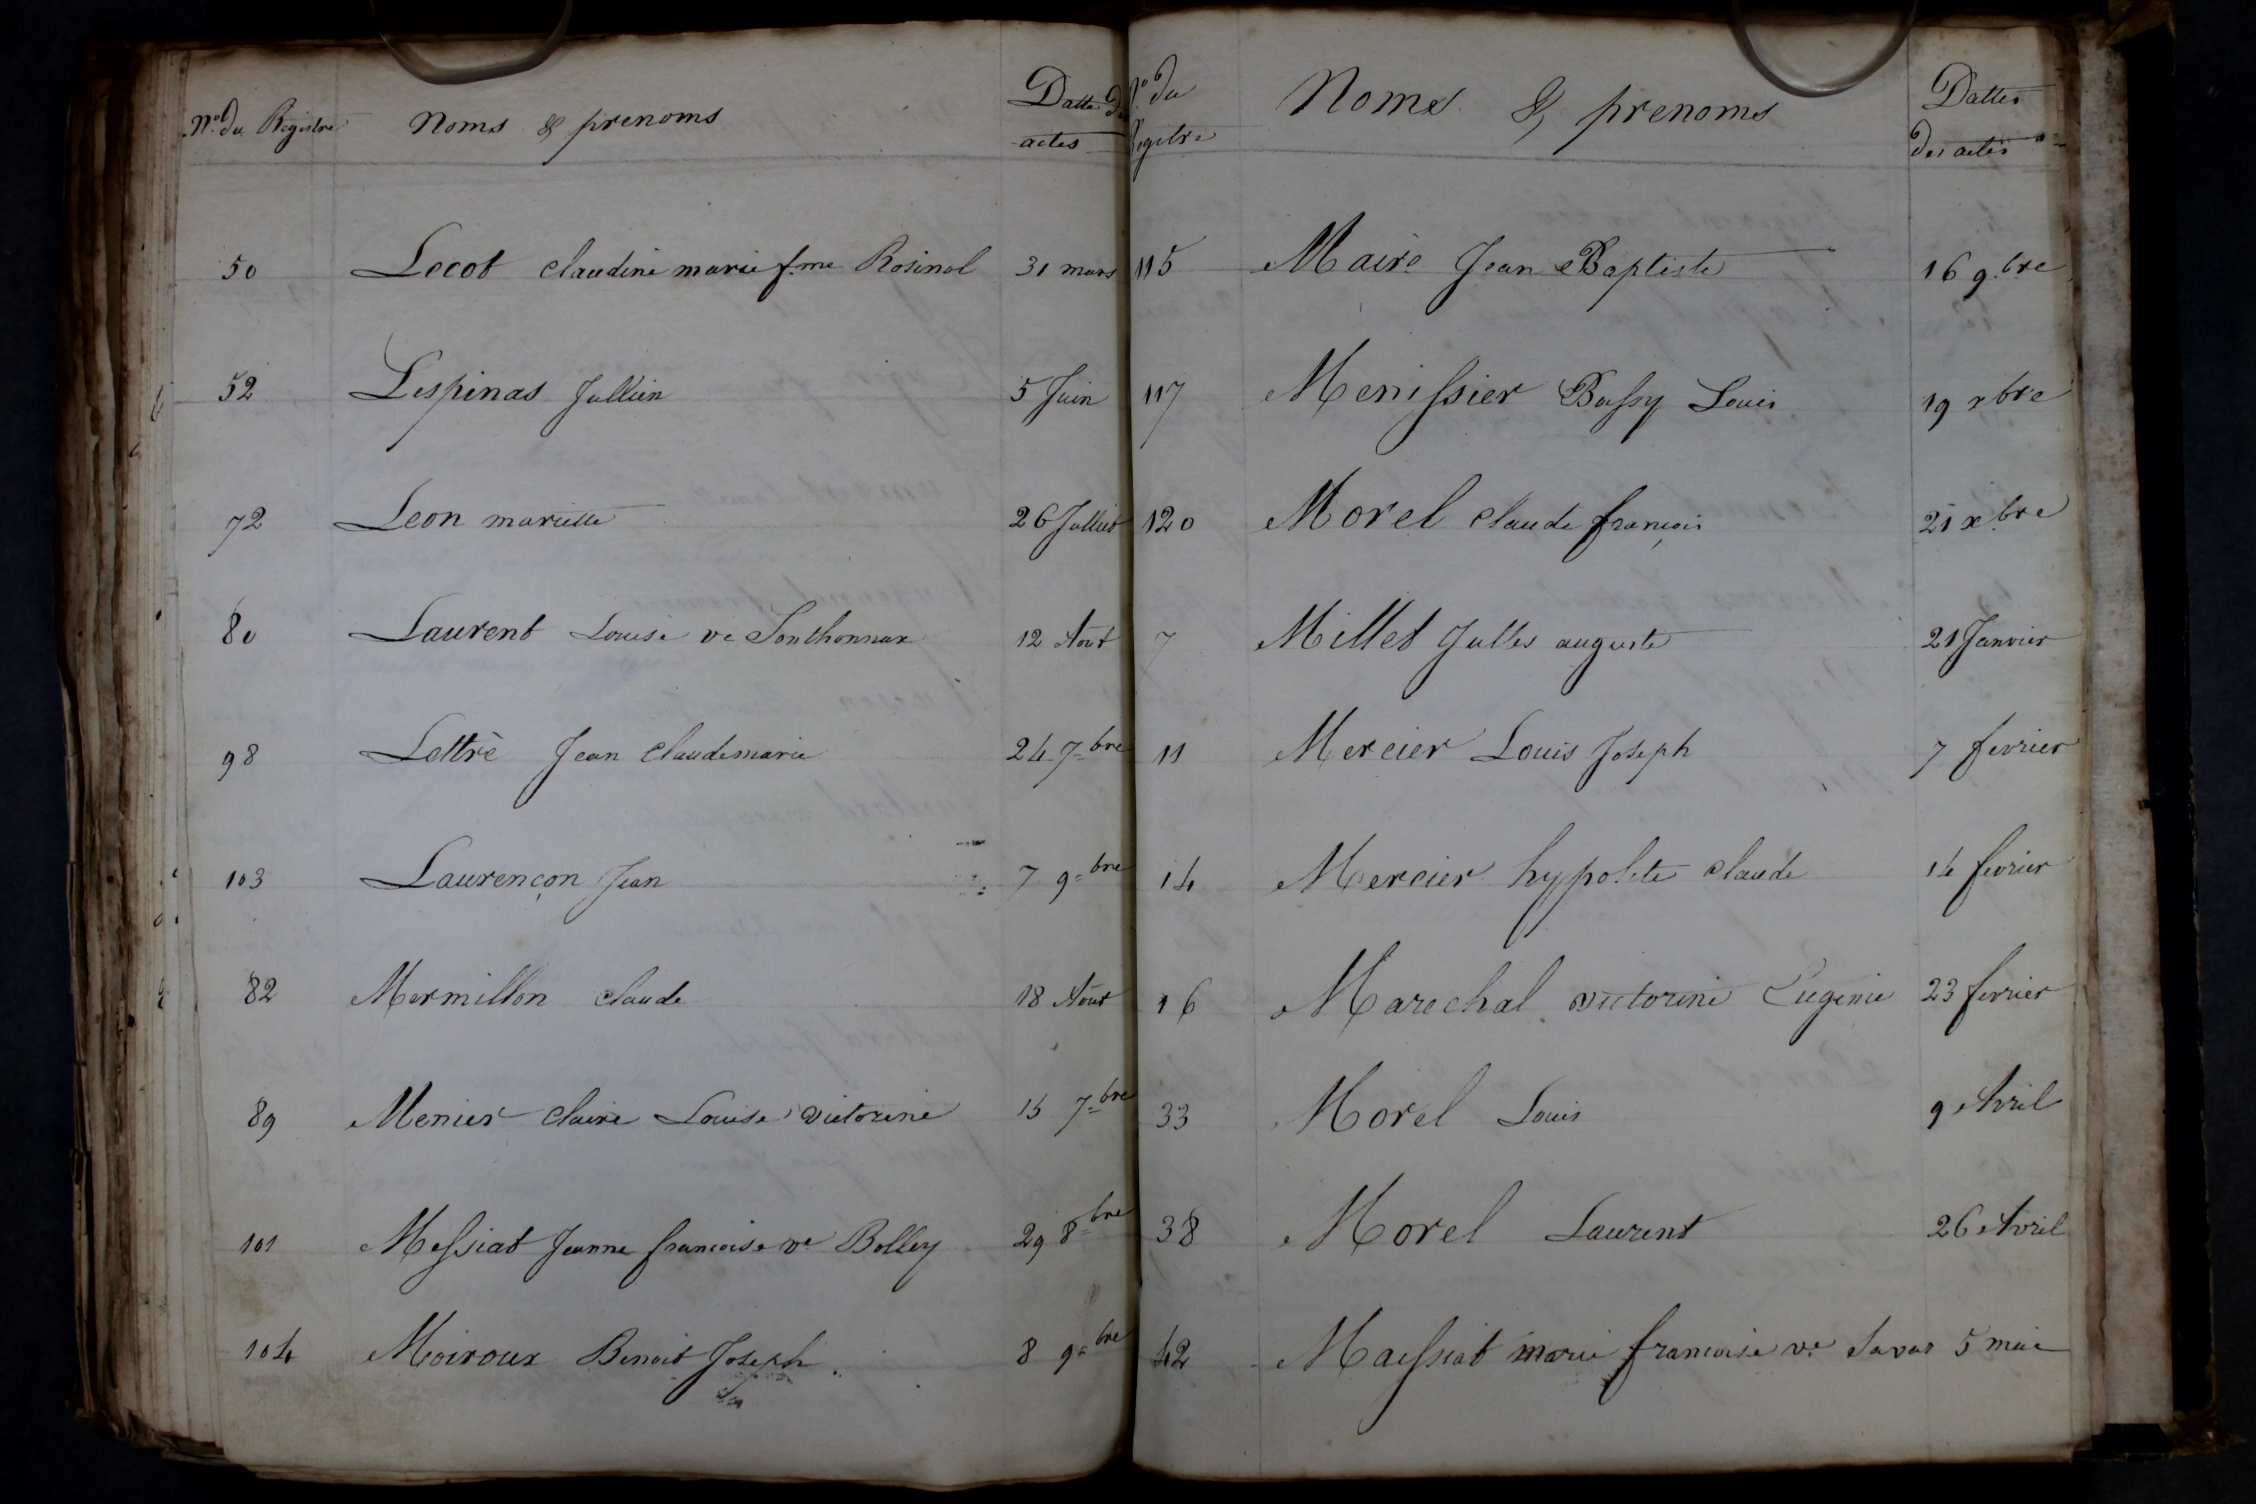 Nos du Registre Noms & prenoms Datte des
actes
50 Locot claudine marie fme Rosinol 31 mars
52 Lespinas Jullien 5 Juin
72 Leon mariette 26 Juillet
80 Laurent Louise ve Sonthonnax 12 Aout
98 Lettrè Jean Claude marie 24 7bre
103 Laurençon Jean 7 9bre
82 Mermillon claude 18 Aout
89 Menier Claire Louise victorine 15 7bre
101 Messiat Jeanne francoise ve Bolley 29 8bre
104 Moiroux Benoit Joseph 8 9bre
No du Noms & prenoms Dattes
Registre des actes
115 Maire Jean Baptiste 16 9bre
117 Menissier Bassy Louis 19 xbre
120 Morel claude françois 21 xbre
7 Millet Julles auguste 21 Janvier
11 Mercier Louis Joseph 7 fevrier
14 Mercier hypolite claude 14 fevrier
16 Marechal victorine Eugenie 23 fevrier
33 Morel Louis 9 Avril
38 Morel Laurent 26 Avril
42 Maissiat marie francoise ve 5 mai